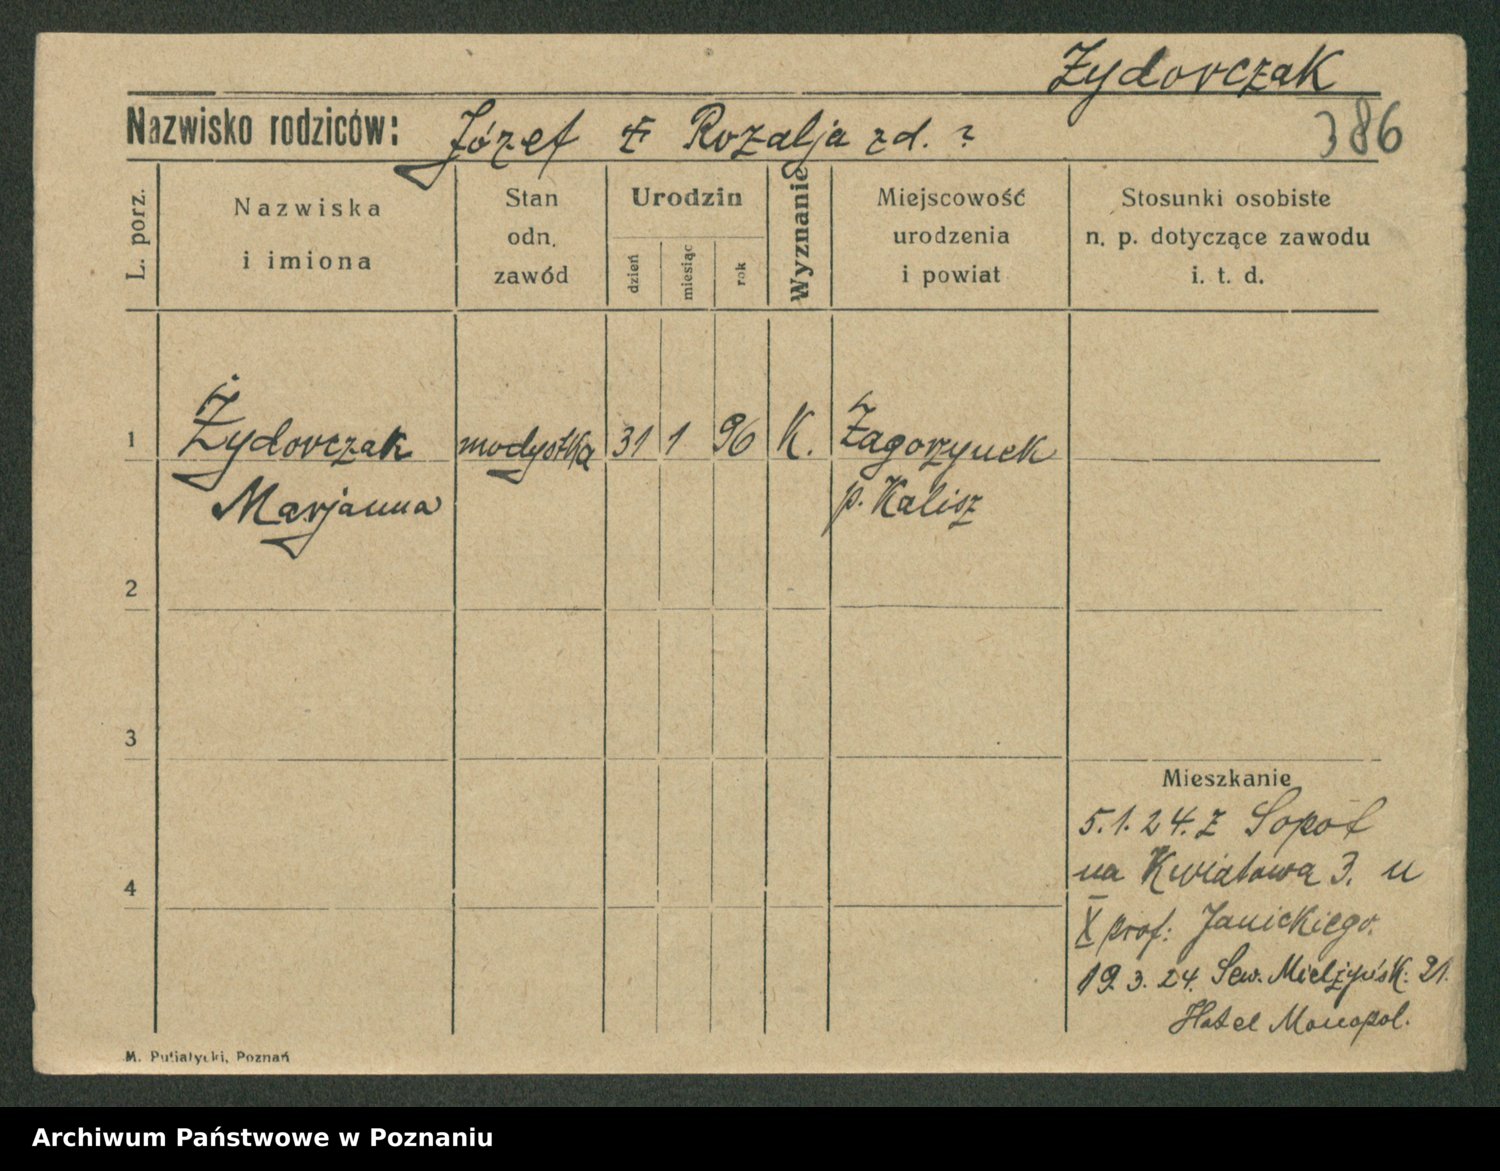 Żydorczak
386
Nazwisko rodziców: Józef & Rozalja zd. ?
L. porz.
Nazwiska
i imiona
Stan
odn.
zawód
Urodzin
dzień
miesiąc
rok
Wyznanie
Miejscowość
urodzenia
i powiat
Stosunki osobiste
n. p. dotyczące zawodu
i. t. d.
1 Żydorczak modystka 31 1 96 K. Zagorzynek
Marjanna p. Kalisz
2
3
4
Mieszkanie
5.1.24. z Sopot
na Kwiatową 3. u
X prof: Janickiego.
19.3.24. Sew. Mielżyńsk: 21.
Hotel Monopol.
M. Putiatycki, Poznań
Archiwum Państwowe w Poznaniu